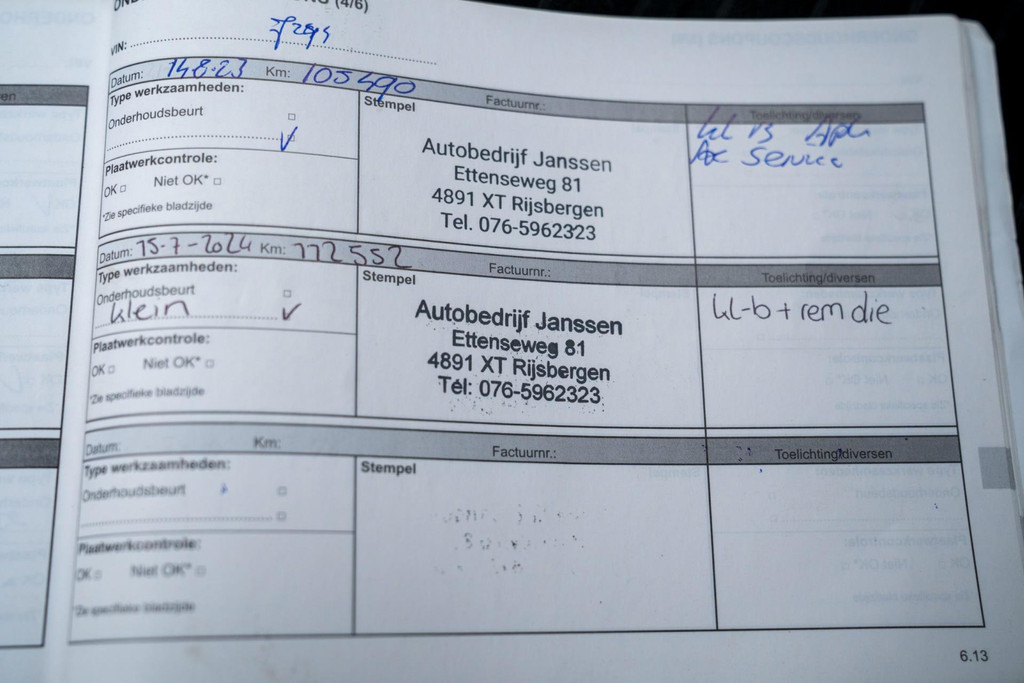 (4/6)
VIN:
Datum: 14-8-23 Km: 105490 Factuurnr.: Toelichting/diversen
Type werkzaamheden:
Onderhoudsbeurt
Plaatwerkcontrole:
OK Niet OK*
*Zie specifieke bladzijde
Stempel
Autobedrijf Janssen
Ettenseweg 81
4891 XT Rijsbergen
Tel. 076-5962323
service
Datum: 15-7-2024 Km: 112552 Factuurnr.: Toelichting/diversen
Type werkzaamheden:
Onderhoudsbeurt
klein
Plaatwerkcontrole:
OK Niet OK*
*Zie specifieke bladzijde
Stempel
Autobedrijf Janssen
Ettenseweg 81
4891 XT Rijsbergen
Tel: 076-5962323
kl-b + rem die
Datum: Km: Factuurnr.: Toelichting/diversen
Type werkzaamheden:
Onderhoudsbeurt
Plaatwerkcontrole:
OK Niet OK*
*Zie specifieke bladzijde
Stempel
6.13